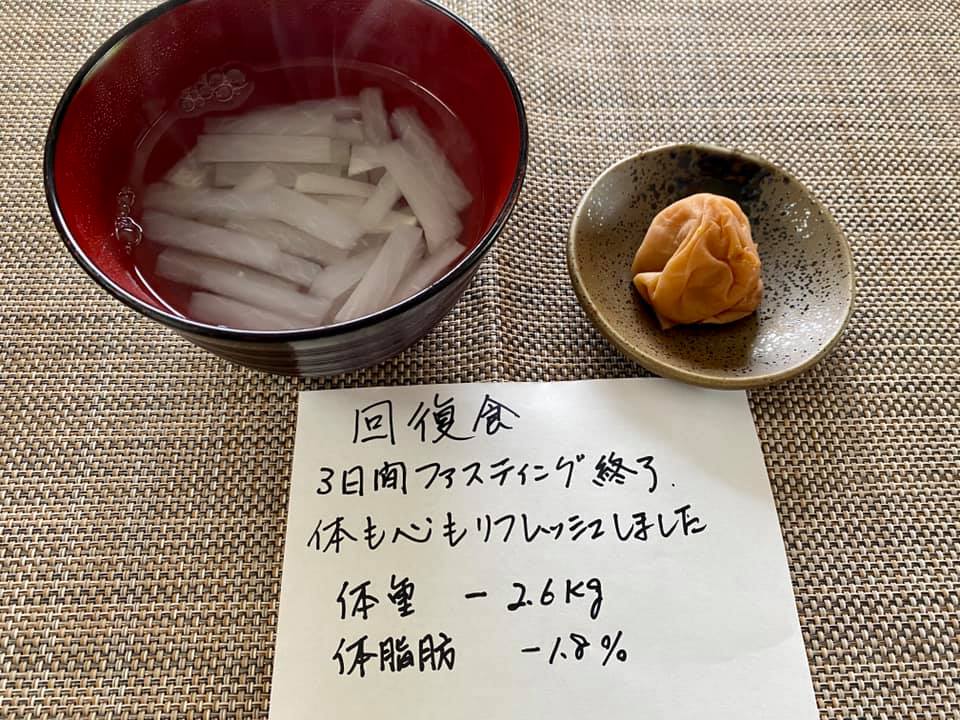 回復食
3日間ファスティング終了.
体も心もリフレッシュしました
体重 -2.6kg
体脂肪 -1.8%